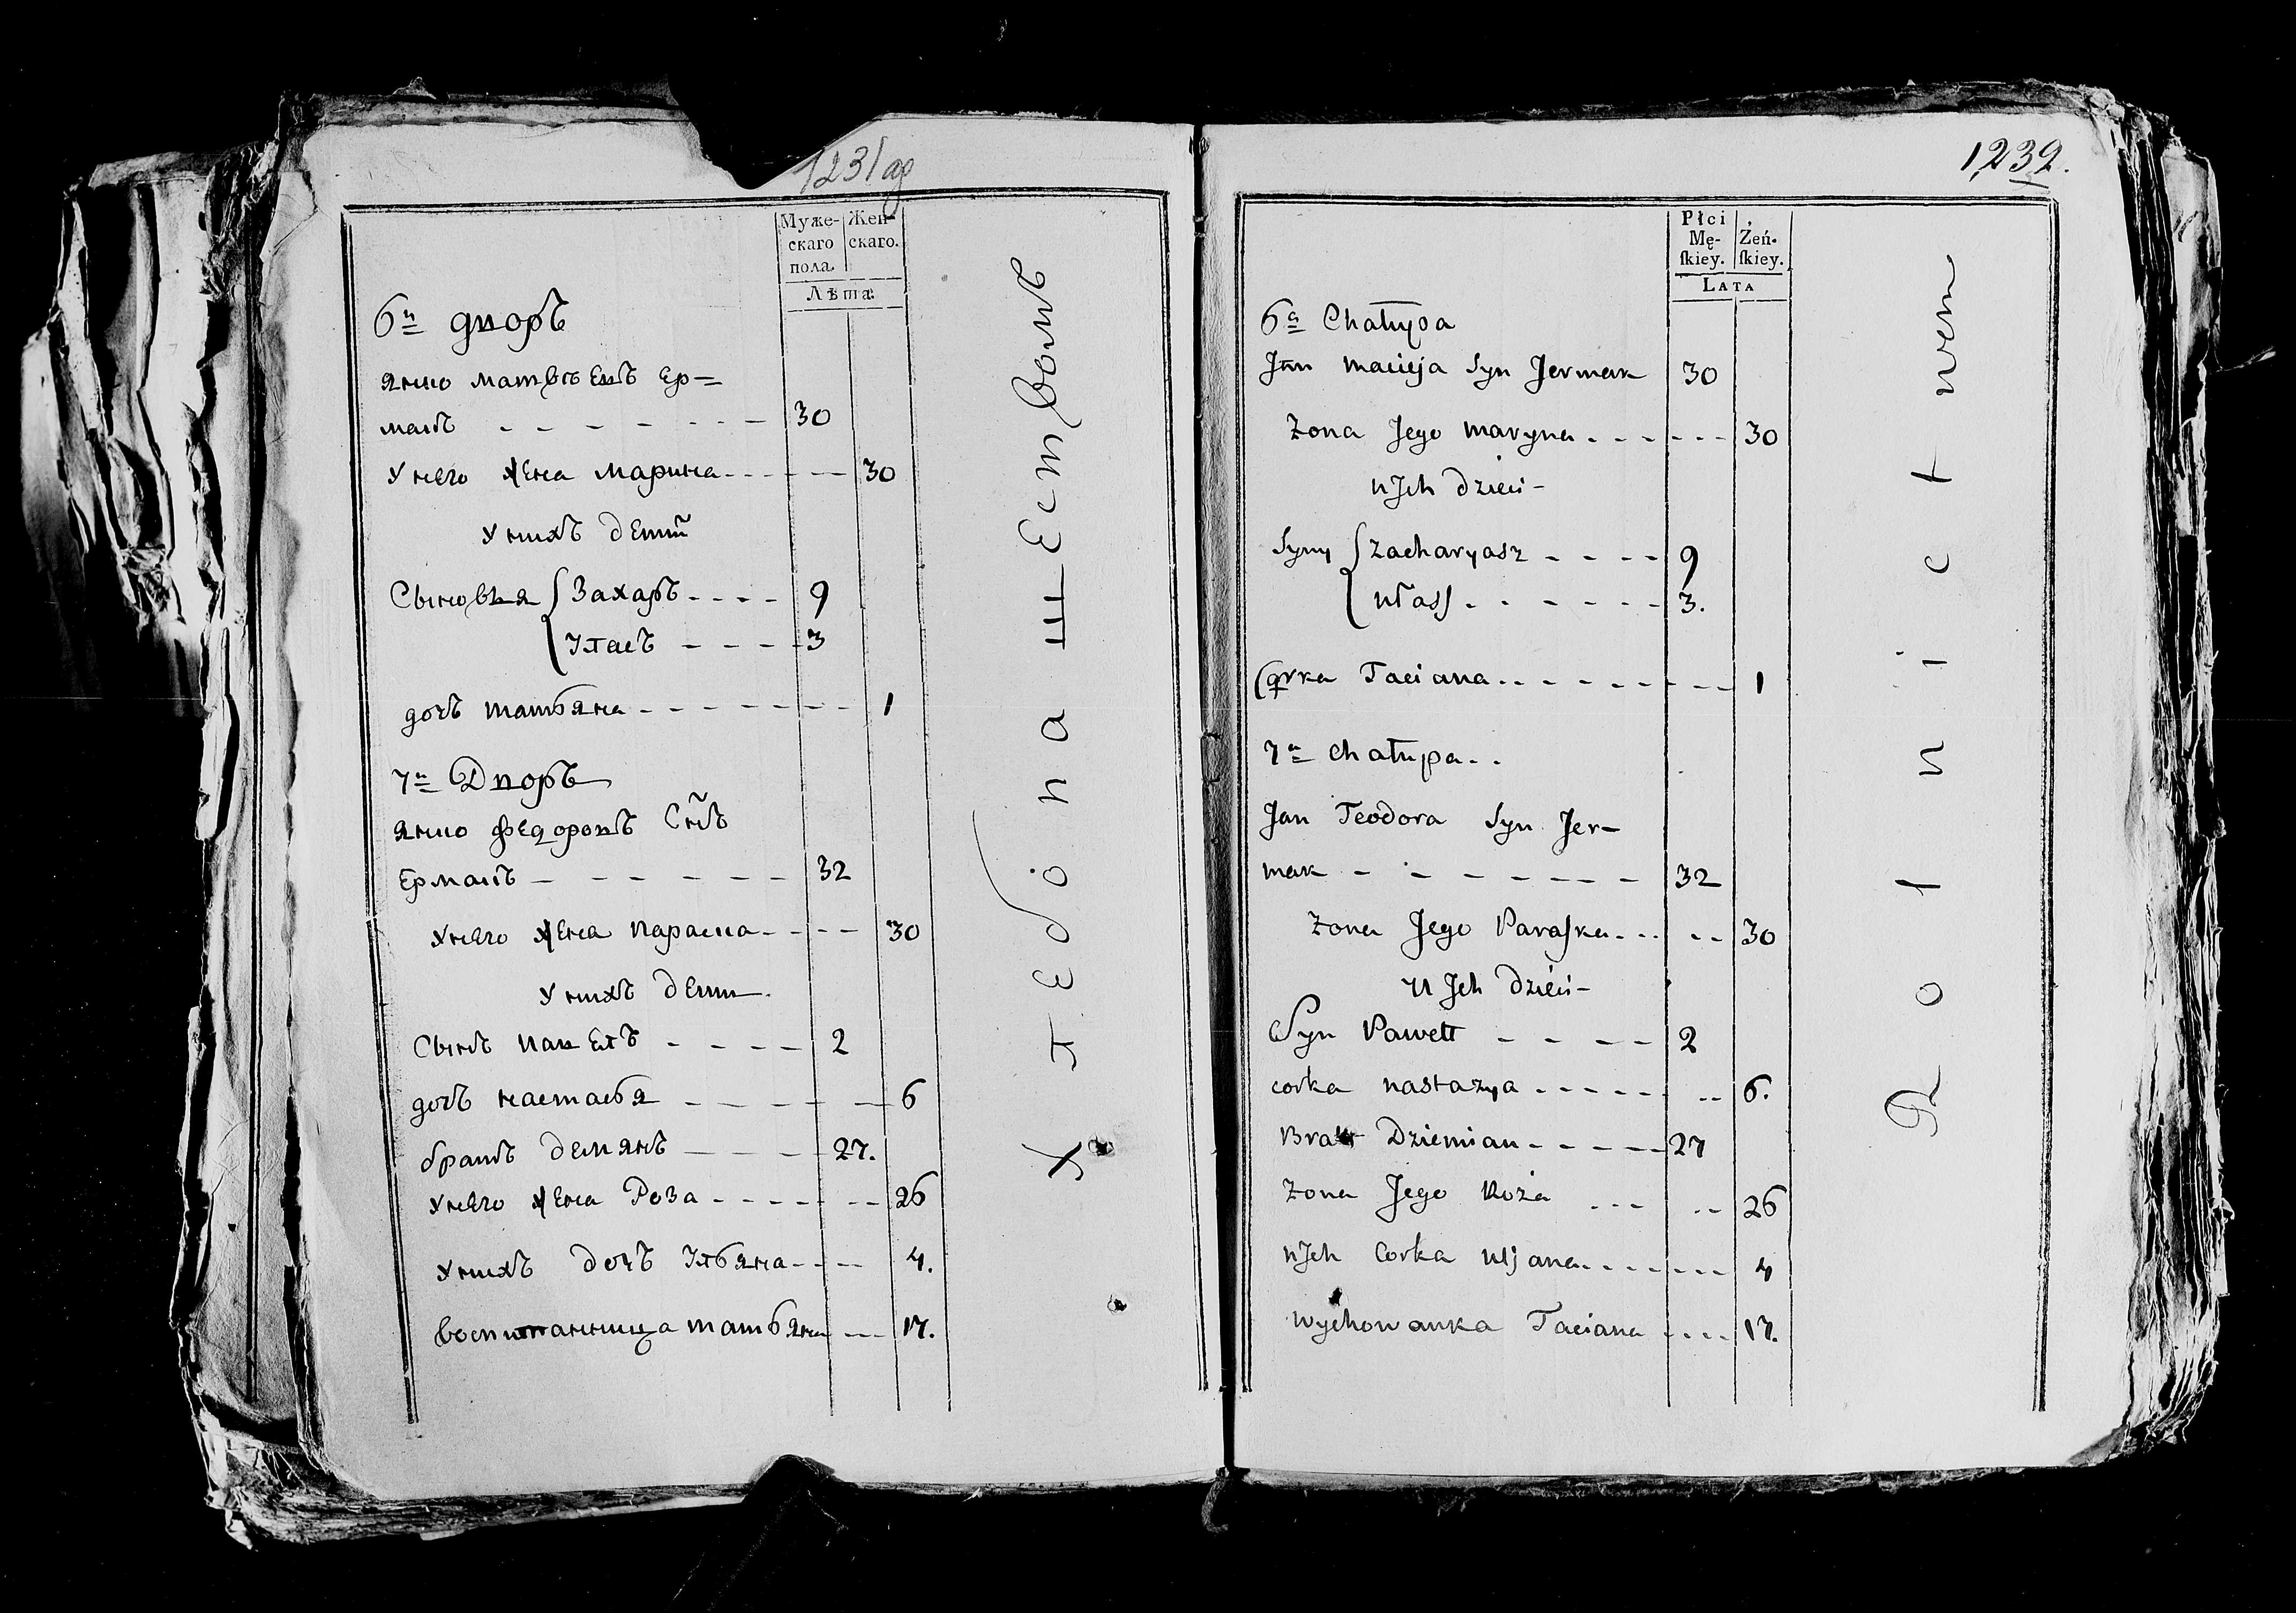 1231 об
Муже-
скаго
пола.
Жен-
скаго.
Лѣта:
6й дворъ
Янко матвѣевъ Ер=
макъ 30
У него жена Марина 30
У нихъ дети
Сыновья Захаръ 9
Уласъ 3
дочь татьяна 1
7й Дворъ
Янко федоровъ Снъ
Ермакъ 32
У него жена параска 30
У нихъ дети
Сынъ павелъ 2
дочь настасья 6
братъ демянъ 27.
У него жена Роза 26
У нихъ дочь Ульяна 4.
воспитанница татьяна 17.
Хлебопашествомъ
1232.
Płci
Mę-
ſkiey.
Żeń-
ſkiey.
LATA
6a Chałupa
Jan Macieja Syn Jermak 30
Zona Jego Maryna 30
u Jch dzieci
Syny Zacharyasz 9
Ułass 3.
Corka Taciana 1
7a Chałupa
Jan Teodora Syn Jer-
mak 32
Zona Jego Paraska 30
U Jch dzieci
Syn Pawełł 2
corka nastazya 6.
Bratt Dziemian 27
Zona Jego Roża 26
u Jch Corka uljana 4
Wychowanka Taciana 17.
Rolnictwem